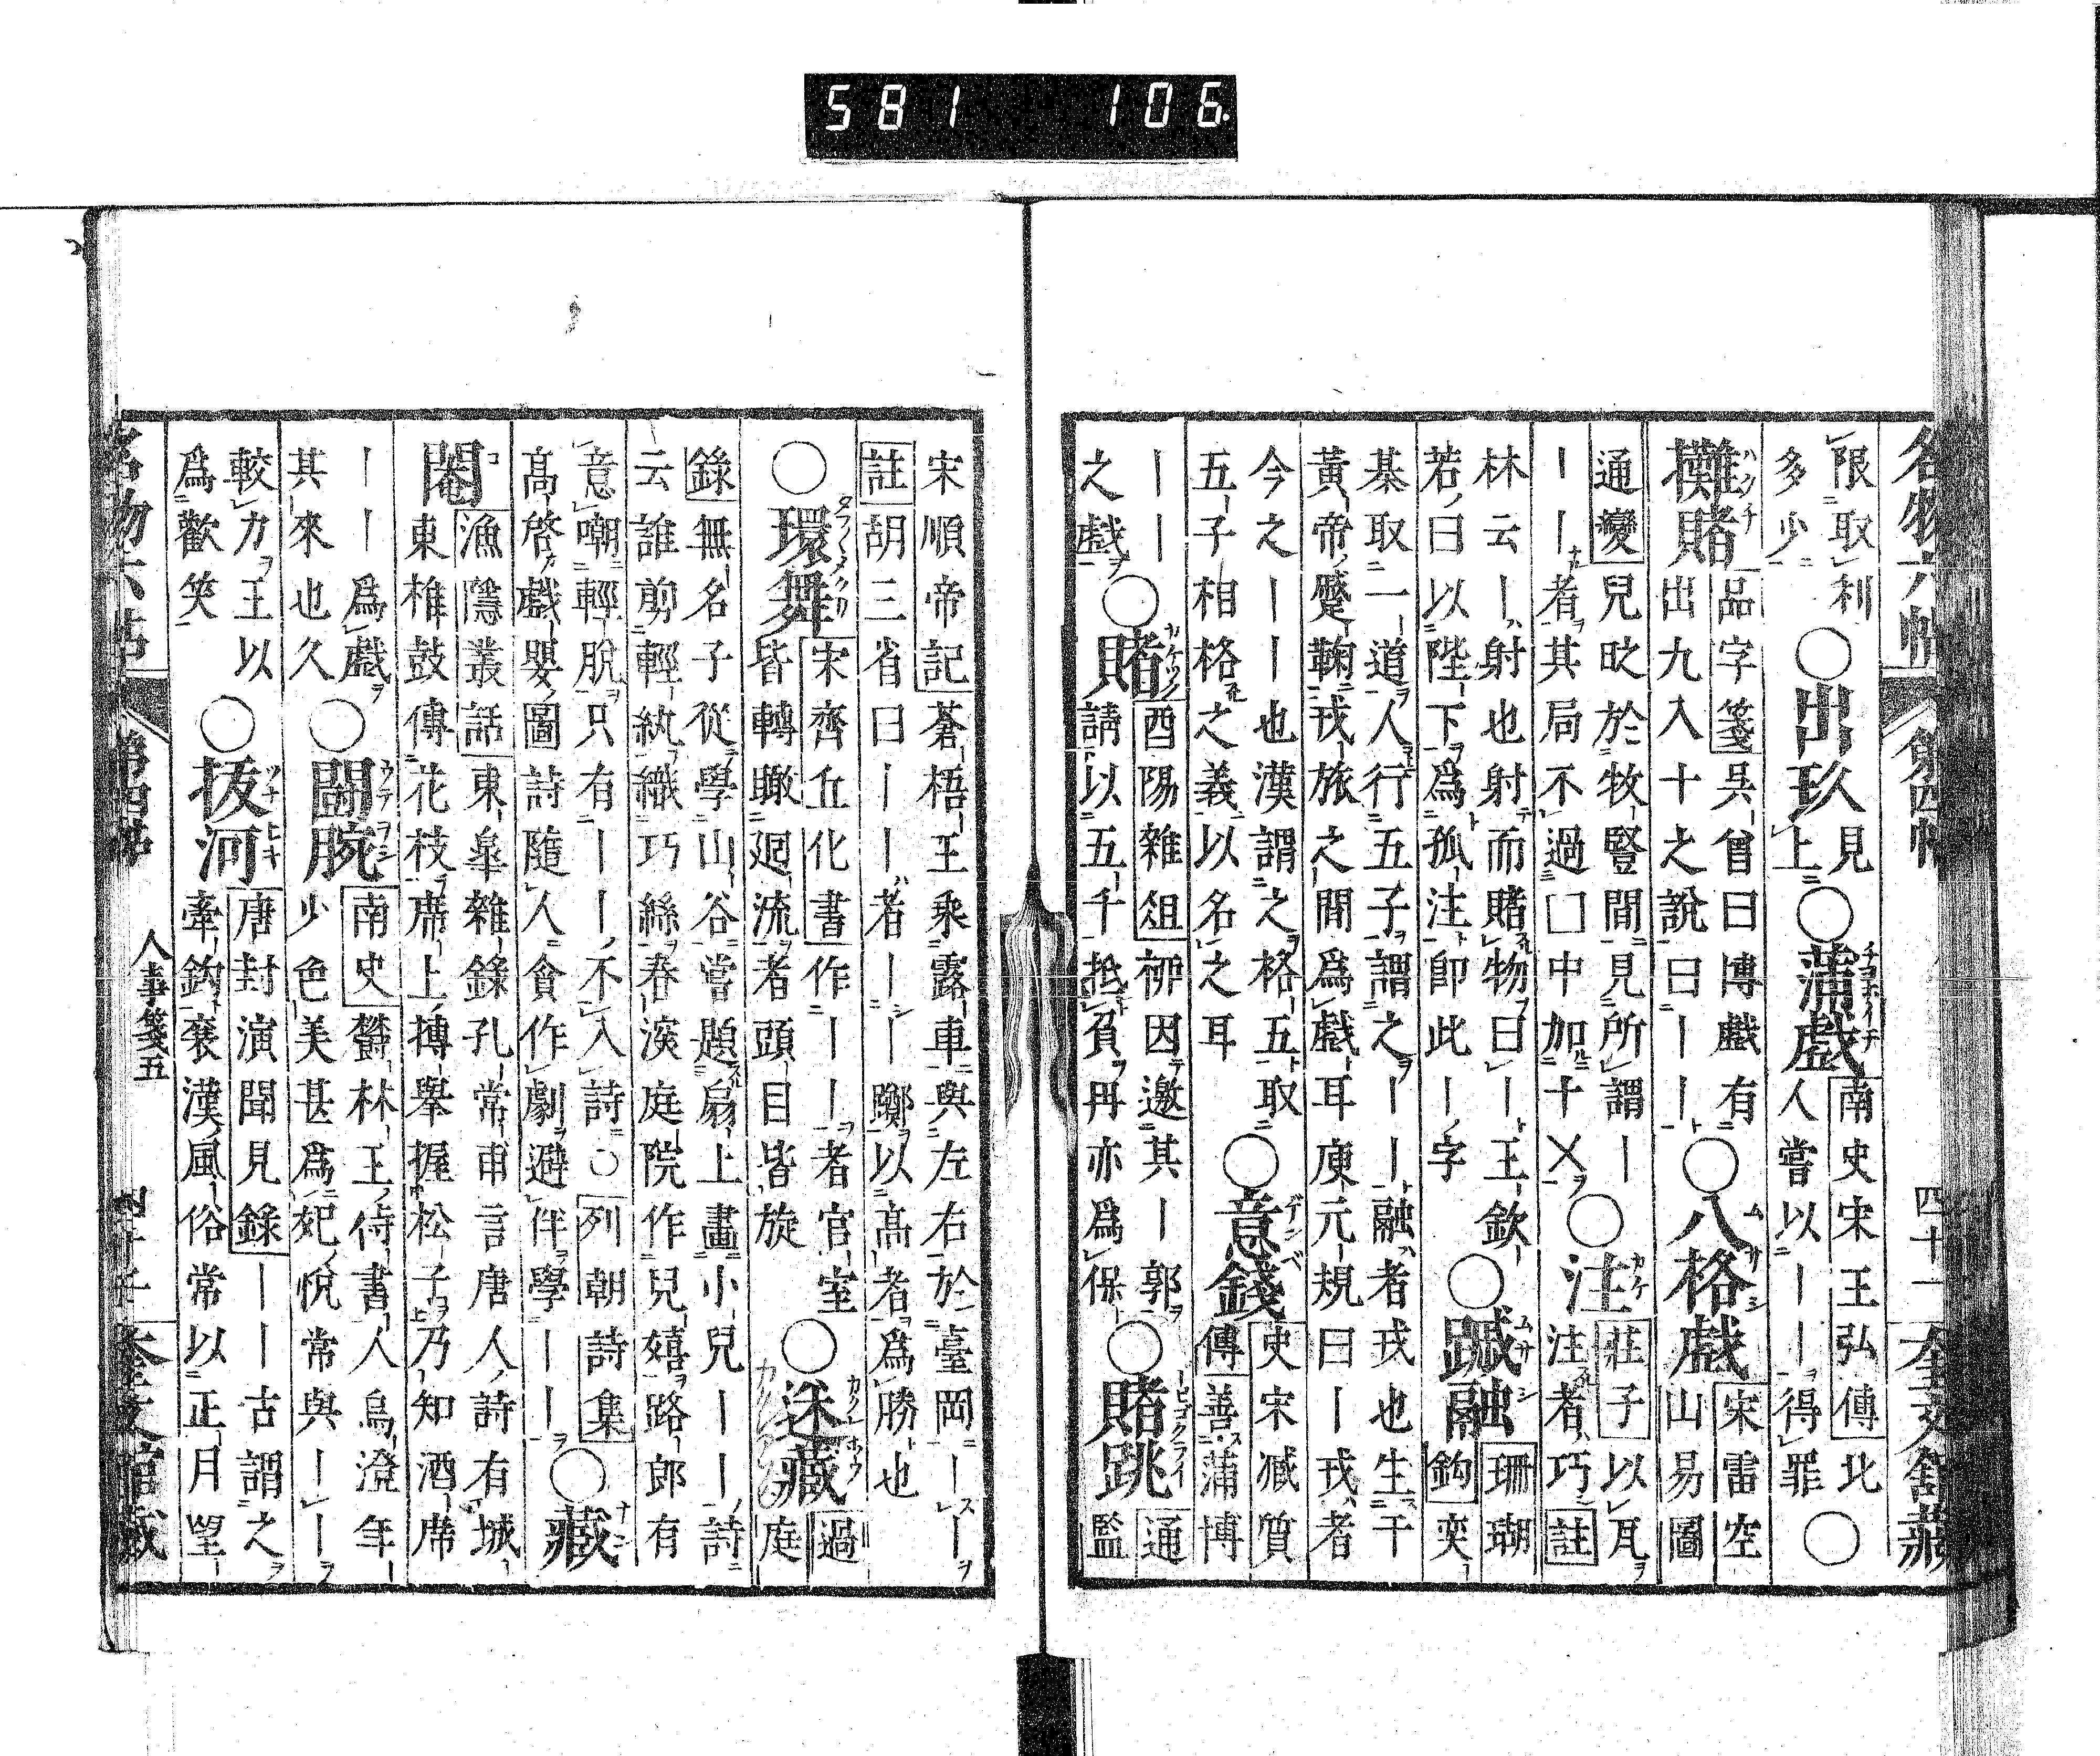 581 106
名物六帖 第四帖 四十一 奎文館藏
限取利
多少
○出玖 見
上
○蒲戲 南史宋王弘傳北
人嘗以ーー得罪 ○
攤賭 品字箋吳曾曰博戲有
出九入十之說曰ーー
○八格戲 宋雷空
山易圖
通變兒㕞於牧豎間見所謂ー
ーー者其局不過囗中加十乂
○注 莊子以瓦
注者巧註
林云ー射也射而賭物曰ー王欽
若曰以陛下爲孤注卽此ー字
○䠞融 珊瑚
鈎奕
棊取一道人行五子謂之ーー融者戎也生于
黃帝蹙鞠戎旅之間爲戲耳庾元規曰ー戎者
今之ーー也漢謂之格五取
五子相格之義以名之耳
○意錢 史宋臧質
傳善蒲博
ーー
之戲
○賭 酉陽雜俎柳因邀其ー郭
請以五千抵負冊亦爲保
○賭跳 通
鑑
宋順帝記蒼梧王乘露車與左右於臺岡ーー
註胡三省曰ーー者ーー躑以高者爲勝也
○環舞 宋齊丘化書作ーー者官室
皆轉瞰廻流者頭目皆旋
○迷藏 過
庭
錄無名子從學山谷嘗題扇上畫小兒ーー詩
云誰剪輕紈織巧絲春深庭院作兒嬉路郎有
意嘲輕脫只有ーー不入詩○列朝詩集
高啓戲嬰圖詩隨人貪作劇避伴學ーー
○藏
鬮 漁隱叢話東皋雜錄孔常甫言唐人詩有城
東椎鼓傳花枝席上搏拳握松子乃知酒席
ーー爲戲
其來也久
○鬪腕 南史鬱林王侍書人烏澄年
少色美甚爲妃悅常與ーー
較力王以
爲歡笑
○拔河 唐封演聞見錄ーー古謂之
牽鈎襄漢風俗常以正月望
名物六帖 第四帖 人事箋五 奎文館藏